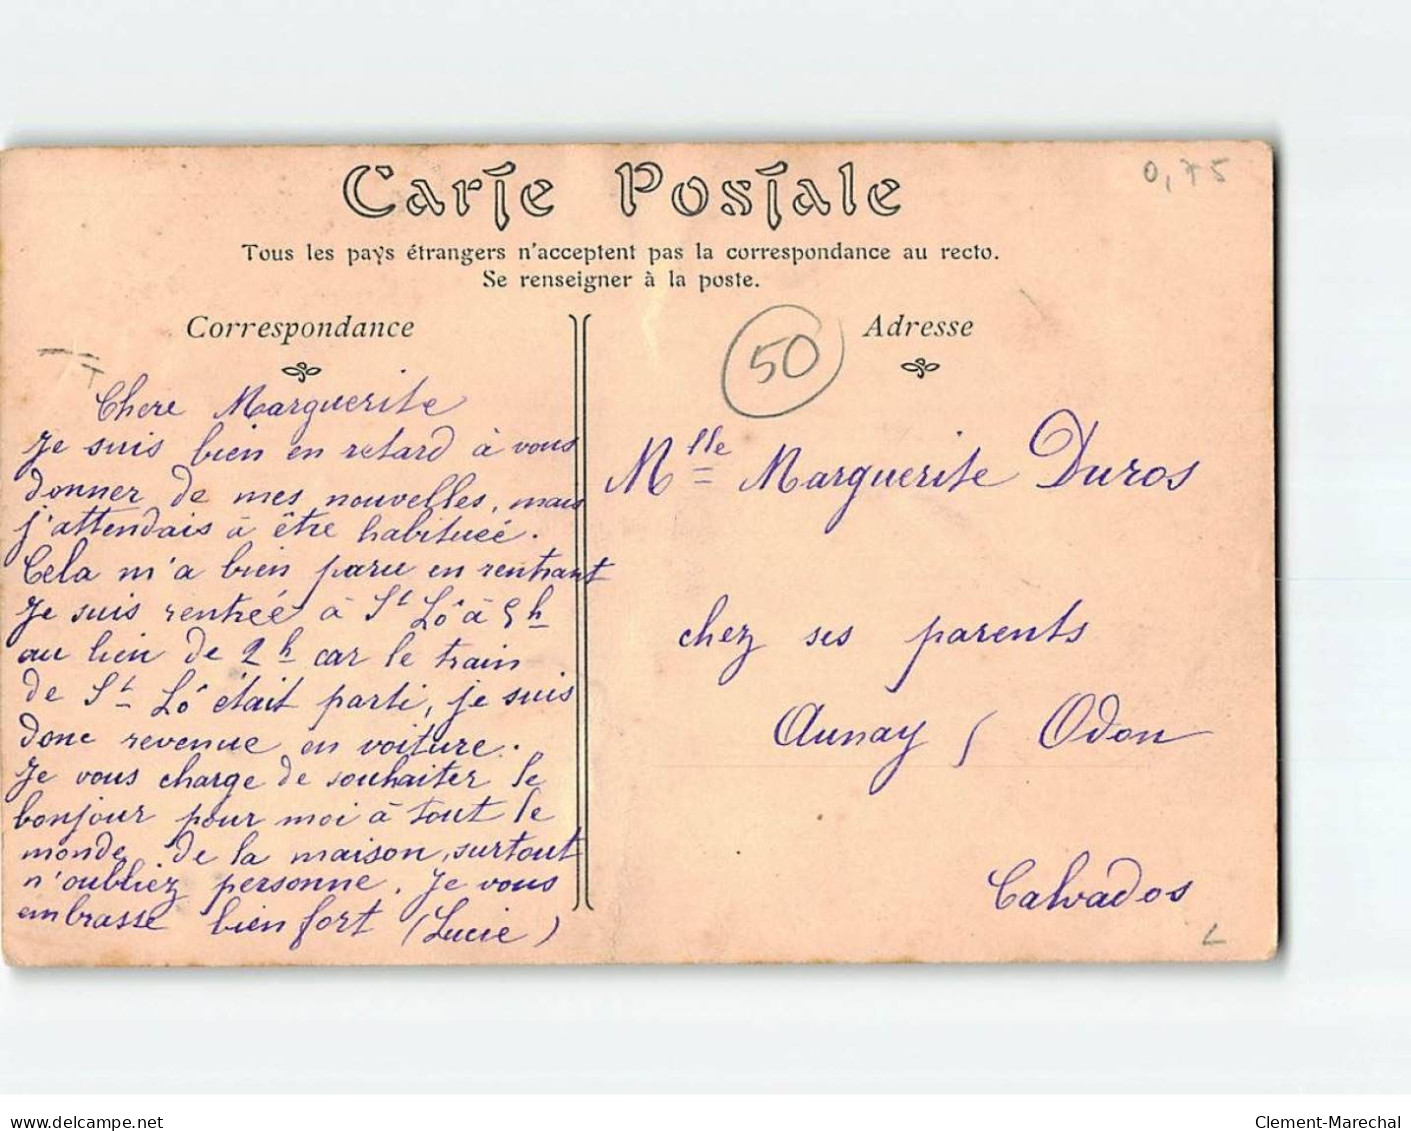 Carte Postale
0,75
Tous les pays étrangers n'acceptent pas la correspondance au recto.
Se renseigner à la poste.
Correspondance
Chere Marguerite
Je suis bien en retard à vous
donner de mes nouvelles, mais
j'attendais à être habituée.
Cela m'a bien paru en rentrant
Je suis rentrée à St Lô à 5h
au lieu de 2h car le train
de St Lô était parti, je suis
donc revenue en voiture.
Je vous charge de souhaiter le
bonjour pour moi à tout le
monde de la maison, surtout
n'oubliez personne. Je vous
embrasse bien fort (Lucie)
50
Adresse
Mlle Marguerite Duros
chez ses parents
Aunay s Odon
Calvados
L
delcampe.net
Clement-Marechal